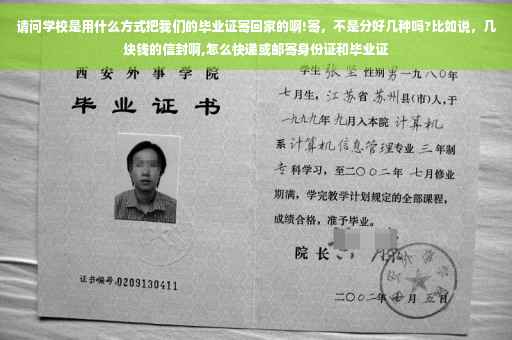 请问学校是用什么方式把我们的毕业证寄回家的啊!寄，不是分好几种吗?比如说，几
块钱的信封啊,怎么快递或邮寄身份证和毕业证
西安外事学院
毕业证书
证书编号:0209130411
学生 张坚 性别 男 一九八〇年
七月生，江苏省 苏州县(市)人,于
一九九九年 九月入本院 计算机
系 计算机信息管理专业 三 年制
专科学习，至二〇〇二年 七月修业
期满，学完教学计划规定的全部课程，
成绩合格，准予毕业。
院长
二〇〇二年 七 月 五 日